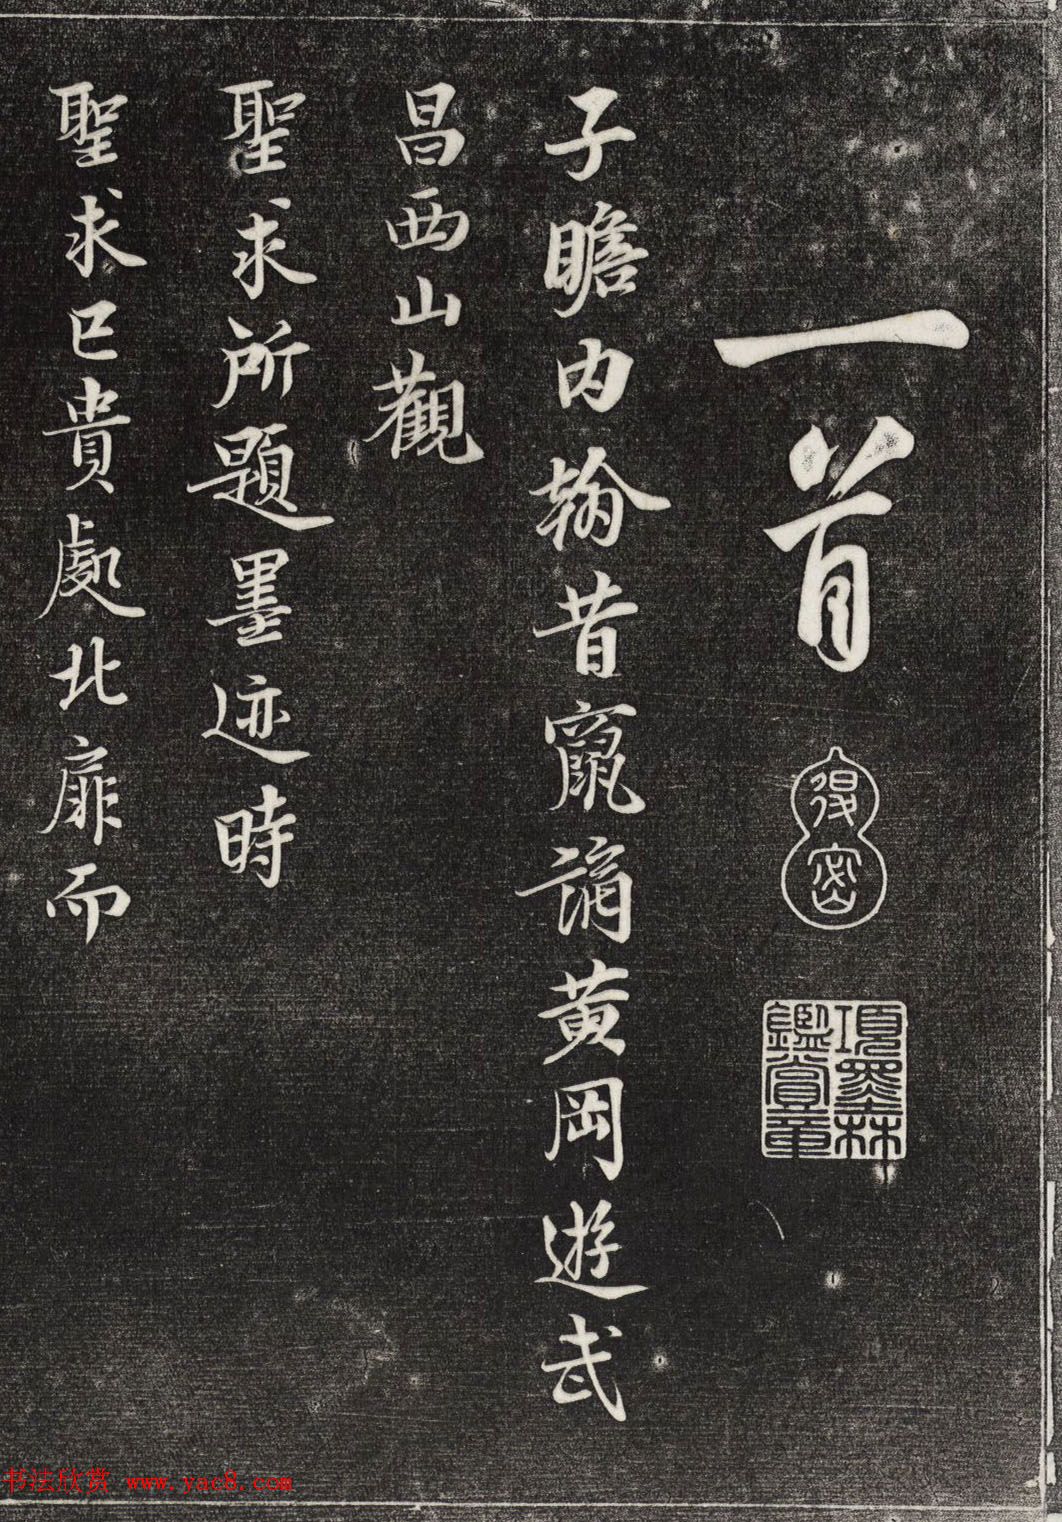 一首
得密
項墨林鑑賞章
子瞻內翰昔竄謫黃岡遊武
昌西山觀
聖求所題墨迹時
聖求已貴處北扉而
书法欣赏 www.yac8.com